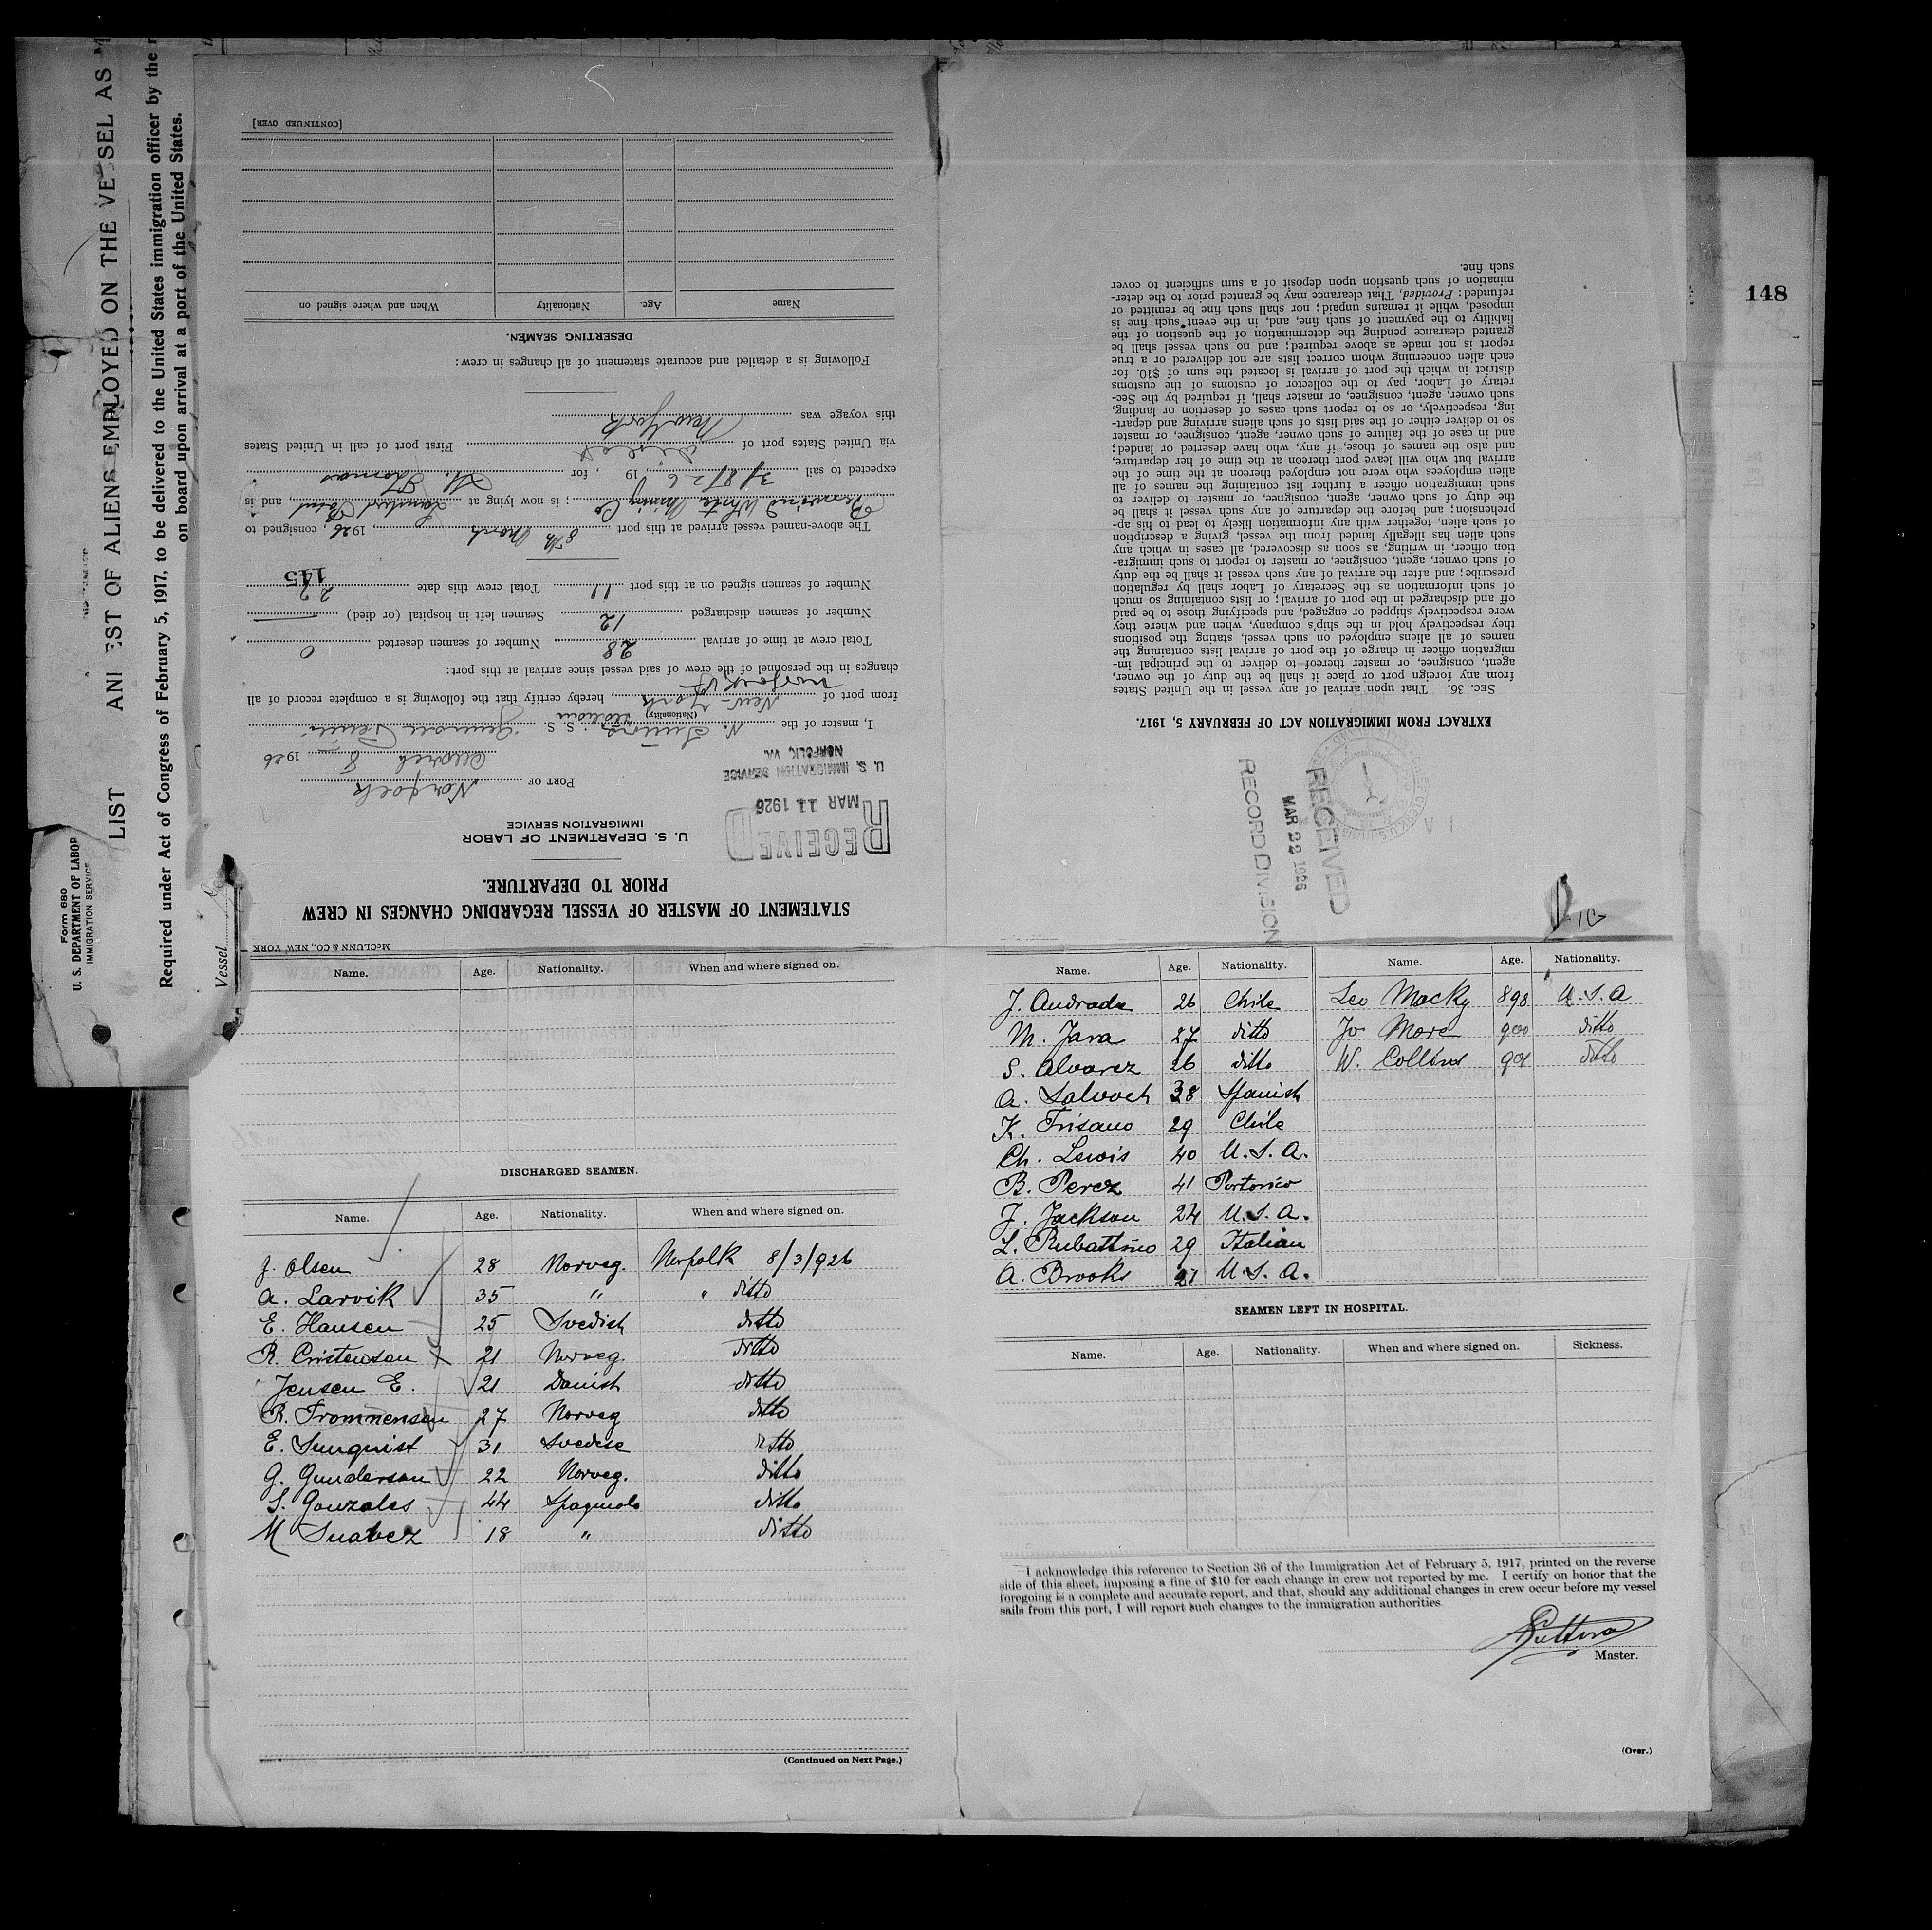 Form 680
U. S. DEPARTMENT OF LABOR
IMMIGRATION SERVICE
LIST
EST OF ALIENS EMPLOYED ON THE VESSEL AS M
Required under Act of Congress of February 5, 1917, to be delivered to the United States immigration officer by the r
on board upon arrival at a port of the United States.
Vessel
148
McCLUNN & CO., NEW YORK
STATEMENT OF MASTER OF VESSEL REGARDING CHANGES IN CREW
PRIOR TO DEPARTURE.
U. S. DEPARTMENT OF LABOR
IMMIGRATION SERVICE
RECEIVED
MAR 11 1926
U. S. IMMIGRATION SERVICE
NORFOLK, VA.
PORT OF Norfolk
March 8 1926
I, master of the S. S.
(Nationality)
from port of New-York, hereby certify that the following is a complete record of all
Norfolk
changes in the personnel of the crew of said vessel since arrival at this port:
Total crew at time of arrival 28 Number of seamen deserted 0
Number of seamen discharged 12 Seamen left in hospital (or died)
Number of seamen signed on at this port 11 Total crew this date 27
145
The above-named vessel arrived at this port 8th March, 1926, consigned to
White Co; is now lying at Lambert Point, and is
expected to sail 3/8/26, 19 , for St. Thomas
via United States port of direct First port of call in United States
this voyage was New York
Following is a detailed and accurate statement of all changes in crew:
DESERTING SEAMEN.
Name Age. Nationality When and where signed on
[CONTINUED OVER]
EXTRACT FROM IMMIGRATION ACT OF FEBRUARY 5, 1917.
SEC. 36. That upon arrival of any vessel in the United States
from any foreign port or place it shall be the duty of the owner,
agent, consignee, or master thereof to deliver to the principal im-
migration officer in charge of the port of arrival lists containing the
names of all aliens employed on such vessel, stating the positions
they respectively hold in the ship's company, when and where they
were respectively shipped or engaged, and specifying those to be paid
off and discharged in the port of arrival; or lists containing so much
of such information as the Secretary of Labor shall by regulation
prescribe; and after the arrival of any such vessel it shall be the duty
of such owner, agent, consignee, or master to report to such immigra-
tion officer, in writing, as soon as discovered, all cases in which any
such alien has illegally landed from the vessel, giving a description
of such alien, together with any information likely to lead to his ap-
prehension; and before the departure of any such vessel it shall be
the duty of such owner, agent, consignee, or master to deliver to
such immigration officer a further list containing the names of all
alien employees who were not employed thereon at the time of the
arrival but who will leave port thereon at the time of her departure,
and also the names of those, if any, who have deserted or landed;
and in case of the failure of such owner, agent, consignee, or master
so to deliver either of the said lists of such aliens arriving and depart-
ing, respectively, or so to report such cases of desertion or landing,
such owner, agent, consignee, or master shall, if required by the Sec-
retary of Labor, pay to the collector of customs of the customs
district in which the port of arrival is located the sum of $10. for
each alien concerning whom correct lists are not delivered or a true
report is not made as above required; and no such vessel shall be
granted clearance pending the determination of the question of the
liability to the payment of such fine, and, in the event such fine is
imposed, while it remains unpaid; nor shall such fine be remitted or
refunded: Provided, That clearance may be granted prior to the deter-
mination of such question upon deposit of a sum sufficient to cover
such fine.
RECEIVED
MAR 22 1926
RECORD DIVISION
Name. Age. Nationality. When and where signed on.
DISCHARGED SEAMEN.
Name. Age. Nationality. When and where signed on.
J. Olsen 28 Norveg. Norfolk 8/3/926
A. Larvik 35 " " ditto
E. Hansen 25 Svedish ditto
R. Cristensen 21 Norveg. ditto
Jensen E. 21 Danish ditto
R. Trommensen 27 Norveg ditto
E. Sunquist 31 Svedese ditto
G. Gunderson 22 Norveg. ditto
S. Gonzales 44 Spagnolo ditto
M Suabez 18 " ditto
(Continued on Next Page.)
Name. Age. Nationality. Name. Age. Nationality.
J. Andrade 26 Chile Leo Macky 898 U.S.A
M. Jara 27 ditto Jo More 900 ditto
S. Alvarez 26 ditto W. Collins 901 ditto
A. Salvoch 38 Spanish
K. Frisano 29 Chile
Ch. Lewis 40 U.S.A.
B. Perez 41 Portorico
J. Jackson 24 U.S.A.
L. Rubattino 29 Italian
A. Brooks 21 U.S.A.
SEAMEN LEFT IN HOSPITAL.
Name. Age. Nationality. When and where signed on. Sickness.
I acknowledge this reference to Section 36 of the Immigration Act of February 5, 1917, printed on the reverse
side of this sheet, imposing a fine of $10 for each change in crew not reported by me. I certify on honor that the
foregoing is a complete and accurate report, and that, should any additional changes in crew occur before my vessel
sails from this port, I will report such changes to the immigration authorities.
Master.
(Over.)